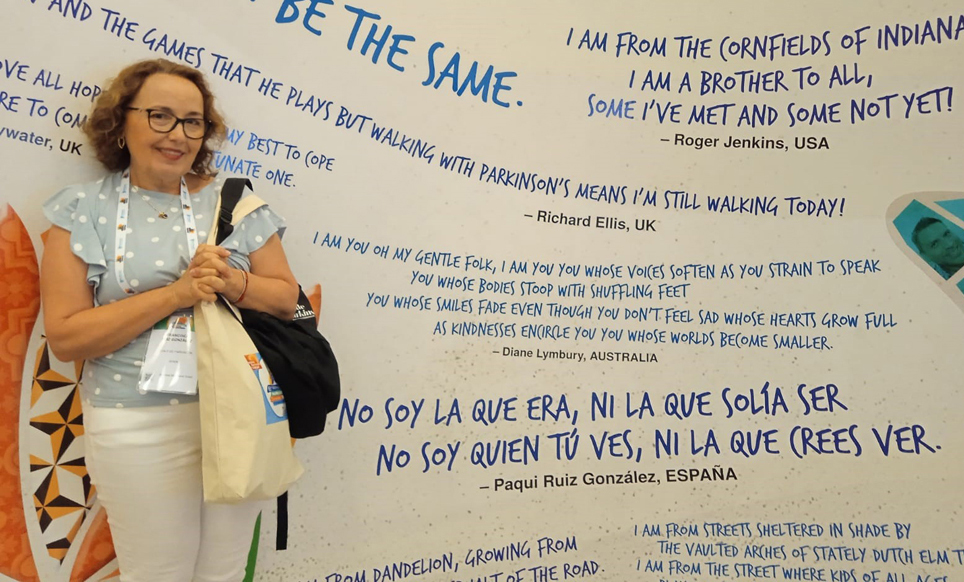 BE THE SAME.
AND THE GAMES THAT HE PLAYS BUT WALKING WITH PARKINSON'S MEANS I'M STILL WALKING TODAY!
– Richard Ellis, UK
ALL
MY BEST TO COPE
ONE.
UK
I AM FROM THE CORNFIELDS OF INDIANA
I AM A BROTHER TO ALL,
SOME I'VE MET AND SOME NOT YET!
– Roger Jenkins, USA
I AM YOU OH MY GENTLE FOLK, I AM YOU YOU WHOSE VOICES SOFTEN AS YOU STRAIN TO SPEAK
YOU WHOSE BODIES STOOP WITH SHUFFLING FEET
YOU WHOSE SMILES FADE EVEN THOUGH YOU DON'T FEEL SAD WHOSE HEARTS GROW FULL
AS KINDNESSES ENCIRCLE YOU YOU WHOSE WORLDS BECOME SMALLER.
– Diane Lymbury, AUSTRALIA
NO SOY LA QUE ERA, NI LA QUE SOLÍA SER
NO SOY QUIEN TÚ VES, NI LA QUE CREES VER.
– Paqui Ruiz González, ESPAÑA
FROM DANDELION, GROWING FROM
OF THE ROAD.
I AM FROM STREETS SHELTERED IN SHADE BY
THE VAULTED ARCHES OF STATELY DUTCH ELM
I AM FROM THE STREET WHERE KIDS OF ALL AGES